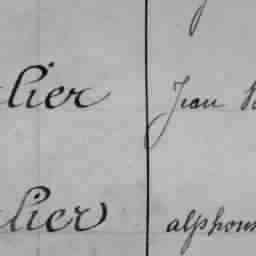 lier Jean
lier alphons